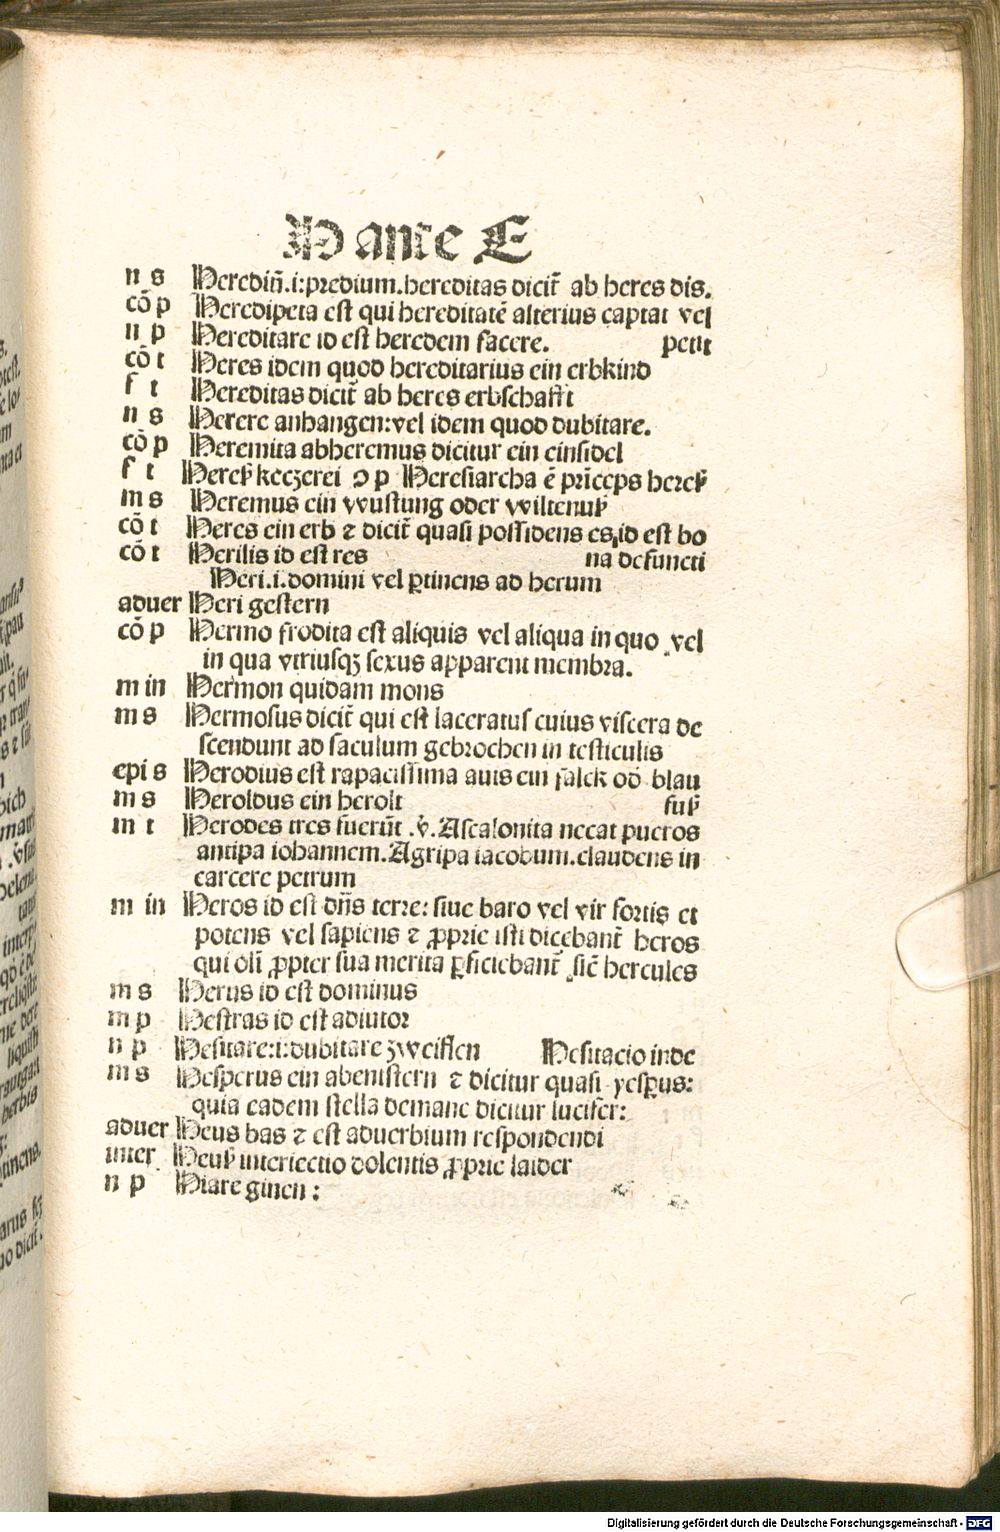 H ante E
n s Herediū.i:predium.hereditas dicit̄ ab heres dis.
cō p Heredipeta est qui hereditatē alterius captat vel
n p Hereditare id est heredem facere. petit
cō t Heres idem quod hereditarius ein erbkind
f t Hereditas dicit̄ ab heres erbschafft
n s Herere anhangen:vel idem quod dubitare.
cō p Heremita abheremus dicitur ein einsidel
f t Heresꝭ keczerei ꝯ p Heresiarcha ē prīceps heresꝭ
m s Heremus ein vvustung oder vviltenuꝭ
cō t Heres ein erb ⁊ dicit̄ quasi possidens es,id est bo
cō t Herilis id est res na defuncti
Heri.i.domini vel ꝑtinens ad herum
aduer Heri gestern
cō p Hermo frodita est aliquis vel aliqua in quo vel
in qua vtriusqꝫ sexus apparent membra.
m in Hermon quidam mons
m s Hermosus dicit̄ qui est laceratus cuius viscera de
scendunt ad saculum gebrochen in testiculis
epi s Herodius est rapacissima auis ein falck od̄ blau
m s Heroldus ein herolt fuꝭ
m t Herodes tres fuerūt .v̄. Ascalonita necat pueros
antipa iohannem.Agripa iacobum.claudens in
carcere petrum
m in Heros id est dn̄s terre: siue baro vel vir fortis et
potens vel sapiens ⁊ ꝓprie isti dicebant̄ heros
qui oli ꝓpter sua merita ꝑficiebant̄ sic̄ hercules
m s Herus id est dominus
m p Hestras id est adiutor
n p Hesitare:i:dubitare zweiflen Hesitacio inde
m s Hesperus ein abenistern ⁊ dicitur quasi yesꝑus:
quia eadem stella demane dicitur lucifer:
aduer Heus bas ⁊ est aduerbium respondendi
inter Heuꝭ interiectio dolentis ꝓprie laider
n p Hiare ginen :
Digitalisierung gefördert durch die Deutsche Forschungsgemeinschaft - DFG